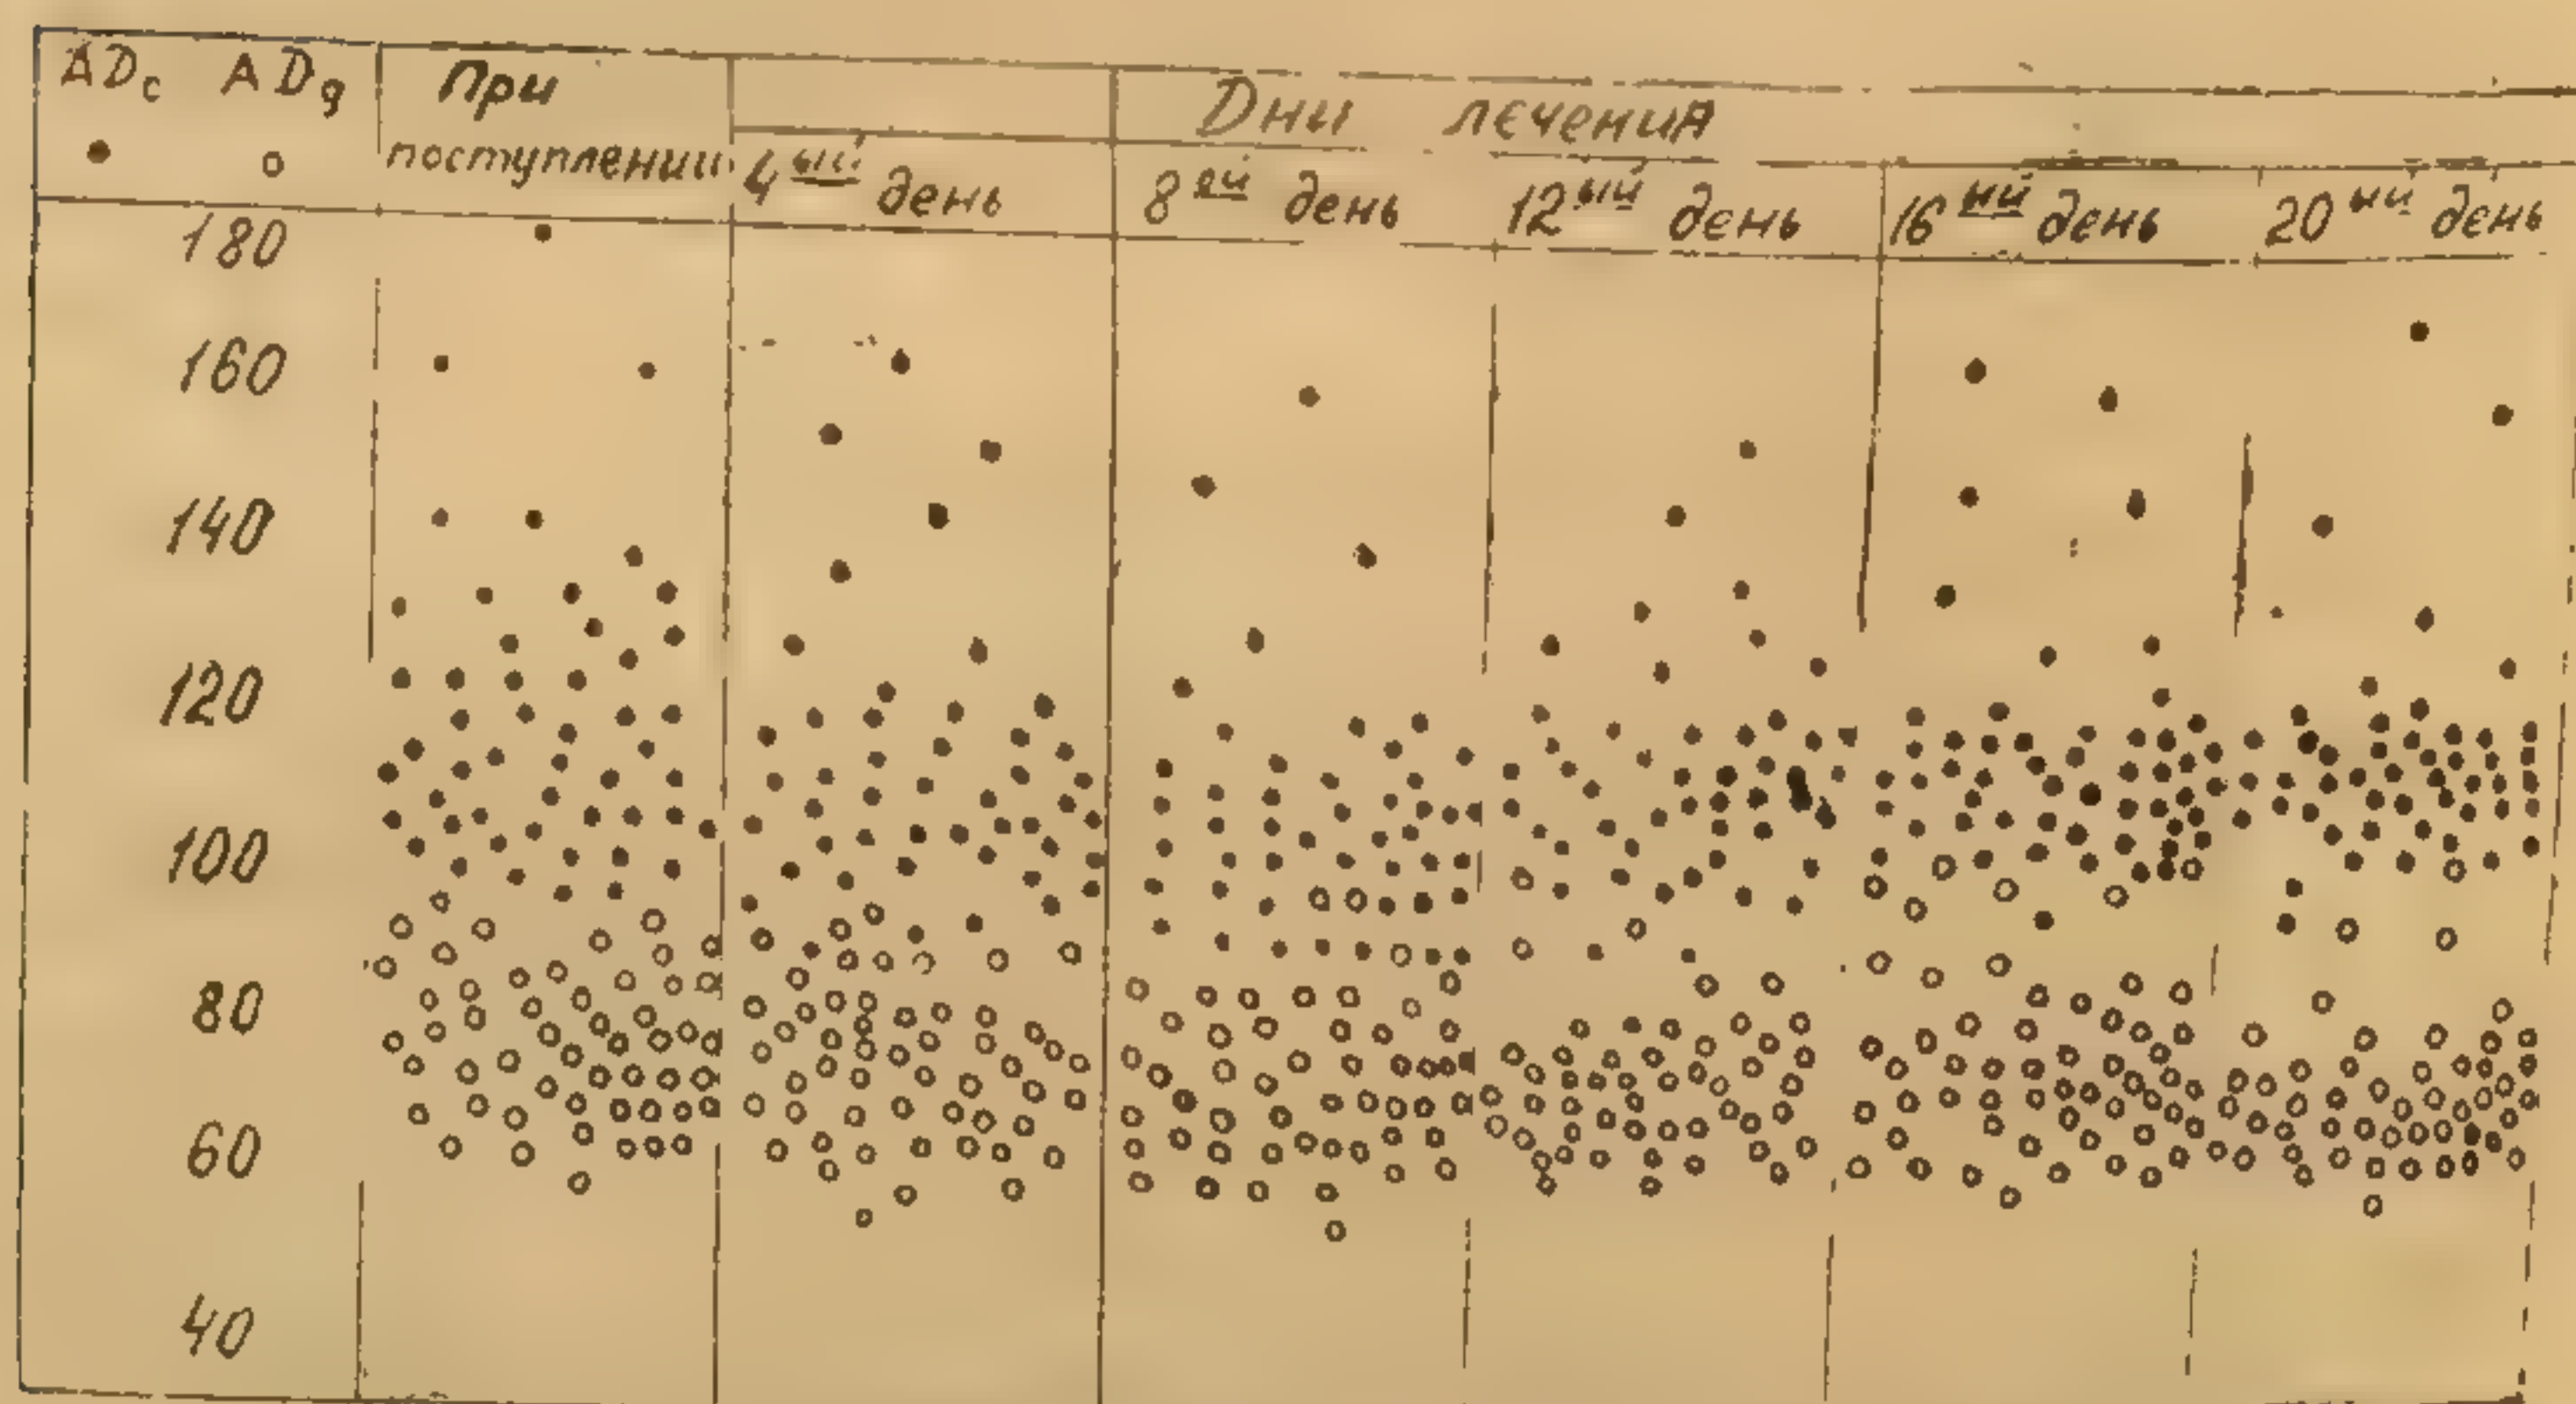 АДс АДд При
поступлении
Дни лечения
4ый день 8ей день 12ый день 16ый день 20ый день
180
160
140
120
100
80
60
40